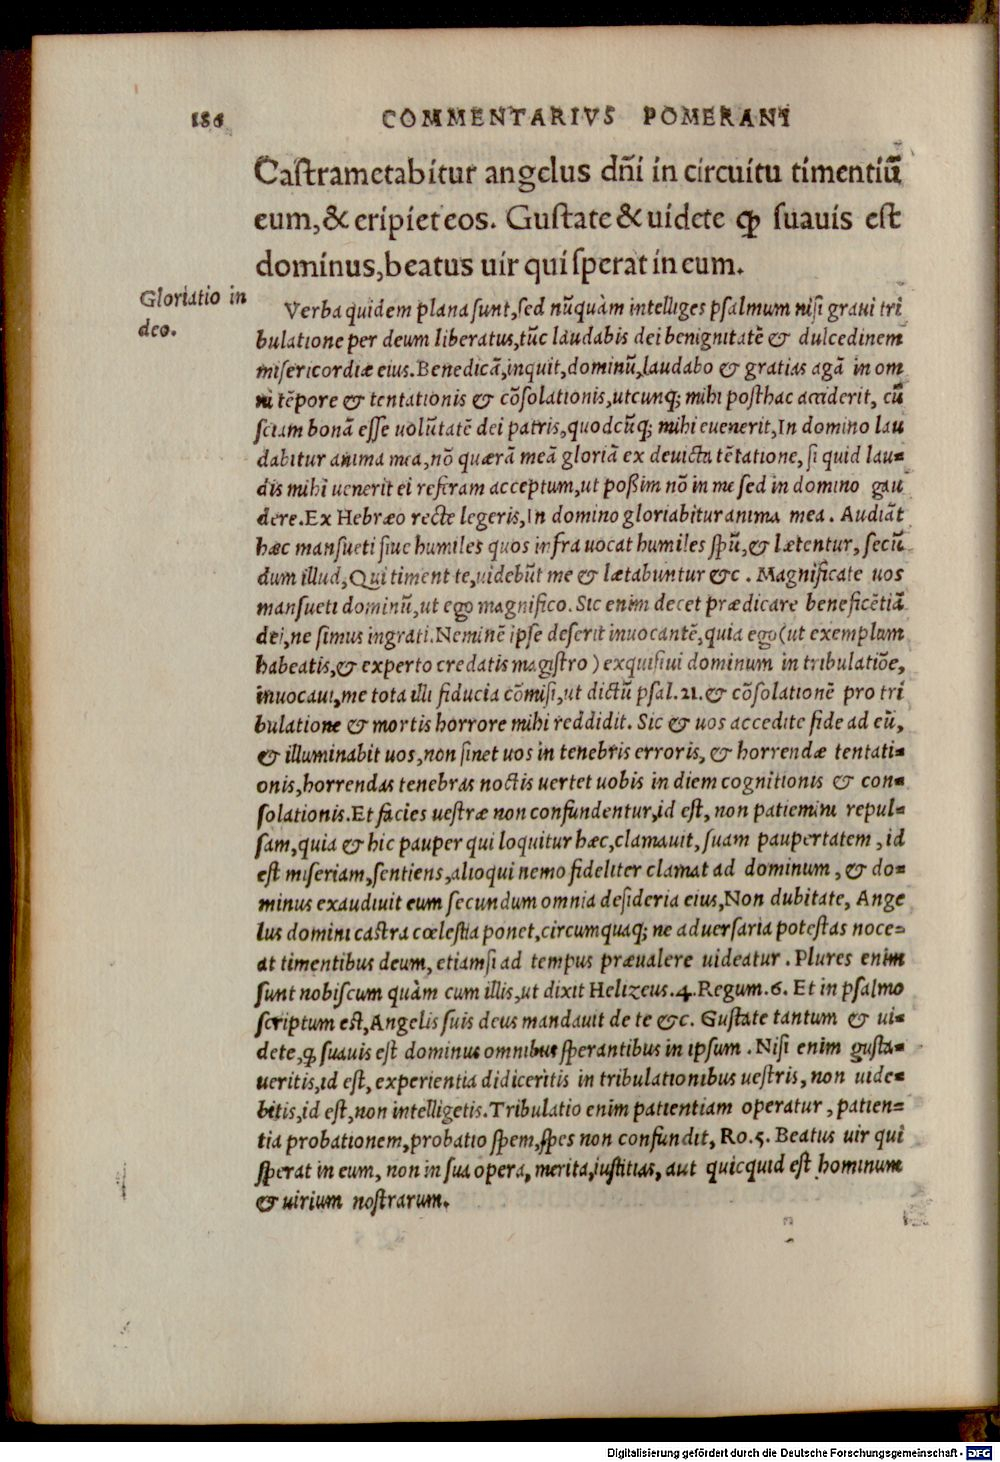 186 COMMENTARIVS POMERANI
Caſtrametabitur angelus dn̄i in circuitu timentiū
eum,& eripiet eos. Guſtate & uidete ꝙ ſuauis eſt
dominus,beatus uir qui ſperat in eum.
Gloriatio in
deo.
Verba quidem plana ſunt,ſed nūquàm intelliges pſalmum niſi graui tri
bulatione per deum liberatus,tūc laudabis dei benignitatē & dulcedinem
miſericordiæ eius.Benedicā,inquit,dominū,laudabo & gratias agā in om
ni tēpore & tentationis & cōſolationis,utcunq; mihi poſthac acciderit, cū
ſciam bonā eſſe uolūtatē dei patris,quodcūq; mihi euenerit,In domino lau
dabitur anima mea,nō quærā meā gloriā ex deuicta tētatione, ſi quid lau-
dis mihi uenerit ei referam acceptum,ut poßim nō in me ſed in domino gau
dere.Ex Hebræo recte legeris,In domino gloriabitur anima mea. Audiāt
hæc manſueti ſiue humiles quos infra uocat humiles ſpū,& lætentur, ſecū
dum illud,Qui timent te,uidebūt me & lætabuntur &c. Magnificate uos
manſueti dominū,ut ego magnifico. Sic enim decet prædicare beneficētiā
dei,ne ſimus ingrati.Neminē ipſe deſerit inuocantē,quia ego(ut exemplum
habeatis,& experto credatis magiſtro) exquiſiui dominum in tribulatiōe,
inuocaui,me tota illi fiducia cōmiſi,ut dictū pſal.21.& cōſolationē pro tri
bulatione & mortis horrore mihi reddidit. Sic & uos accedite fide ad eū,
& illuminabit uos,non ſinet uos in tenebris erroris, & horrendæ tentati-
onis,horrendas tenebras noctis uertet uobis in diem cognitionis & con-
ſolationis.Et facies ueſtræ non confundentur,id eſt, non patiemini repul-
ſam,quia & hic pauper qui loquitur hæc,clamauit, ſuam paupertatem, id
eſt miſeriam,ſentiens,alioqui nemo fideliter clamat ad dominum, & do-
minus exaudiuit eum ſecundum omnia deſideria eius,Non dubitate, Ange
lus domini caſtra cœleſtia ponet,circumquaq; ne aduerſaria poteſtas noce-
at timentibus deum, etiamſi ad tempus præualere uideatur. Plures enim
ſunt nobiſcum quàm cum illis,ut dixit Helizeus.4.Regum.6. Et in pſalmo
ſcriptum eſt,Angelis ſuis deus mandauit de te &c. Guſtate tantum & ui-
dete,ꝙ ſuauis eſt dominus omnibus ſperantibus in ipſum. Niſi enim guſta-
ueritis,id eſt, experientia didiceritis in tribulationibus ueſtris, non uide-
bitis,id eſt,non intelligetis.Tribulatio enim patientiam operatur, patien-
tia probationem,probatio ſpem,ſpes non confundit, Ro.5. Beatus uir qui
ſperat in eum, non in ſua opera, merita,iuſtitias, aut quicquid eſt hominum
& uirium noſtrarum.
Digitalisierung gefördert durch die Deutsche Forschungsgemeinschaft - DFG